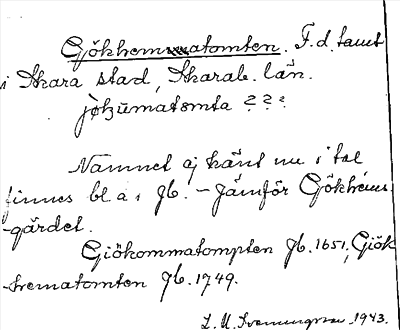 Gökhemmatomten. F.d. tomt
i Skara stad, Skarab. län.
jøkumatomta ???
Namnet ej känt nu i tal
finnes bl. a i Jb. – Jämför Gökhems
-gärdet.
Giökommatompten Jb. 1651, Giök
-hrematomten Jb. 1749.
1943.